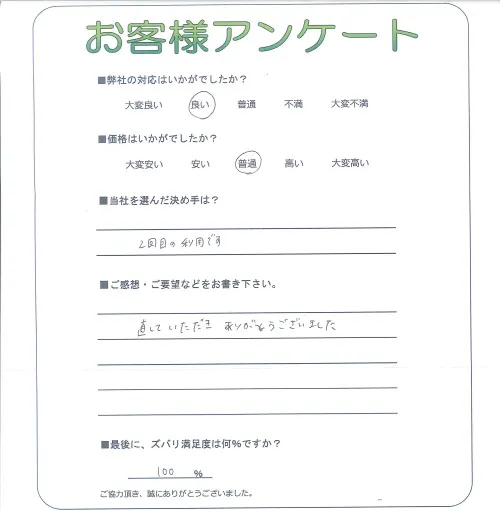 お客様アンケート
■弊社の対応はいかがでしたか？
大変良い 良い 普通 不満 大変不満
■価格はいかがでしたか？
大変安い 安い 普通 高い 大変高い
■当社を選んだ決め手は？
2回目の利用です
■ご感想・ご要望などをお書き下さい。
直していただき ありがとうございました
■最後に、ズバリ満足度は何%ですか？
100 %
ご協力頂き、誠にありがとうございました。